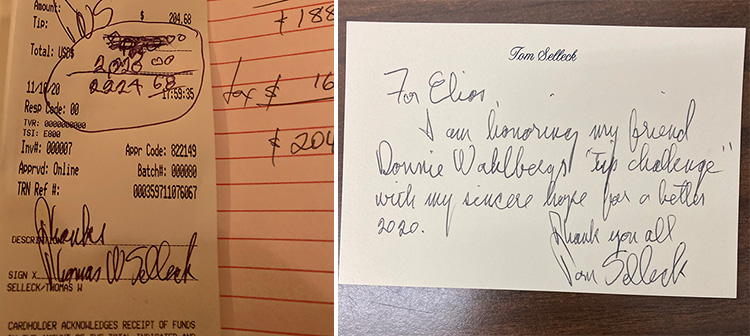 Amount: $ 204.68
Tip:
2020 00
Total: USD$
2224 68
11/18/20 17:59:35
Resp Code: 00
TVR: 0000000000
TSI: E800
Inv#: 000007 Appr Code: 822149
Apprvd: Online Batch#: 000080
TRN Ref #: 000359711076067
Thanks
DESCRIPTION
Thomas W Selleck
SIGN X
SELLECK/THOMAS W
CARDHOLDER ACKNOWLEDGES RECEIPT OF FUNDS
+188
tax $ 16
$ 204
Tom Selleck
For Elios,
I am honoring my friend
Donnie Wahlbergs "tip challenge"
with my sincere hope for a better
2020.
Thank you all
Tom Selleck